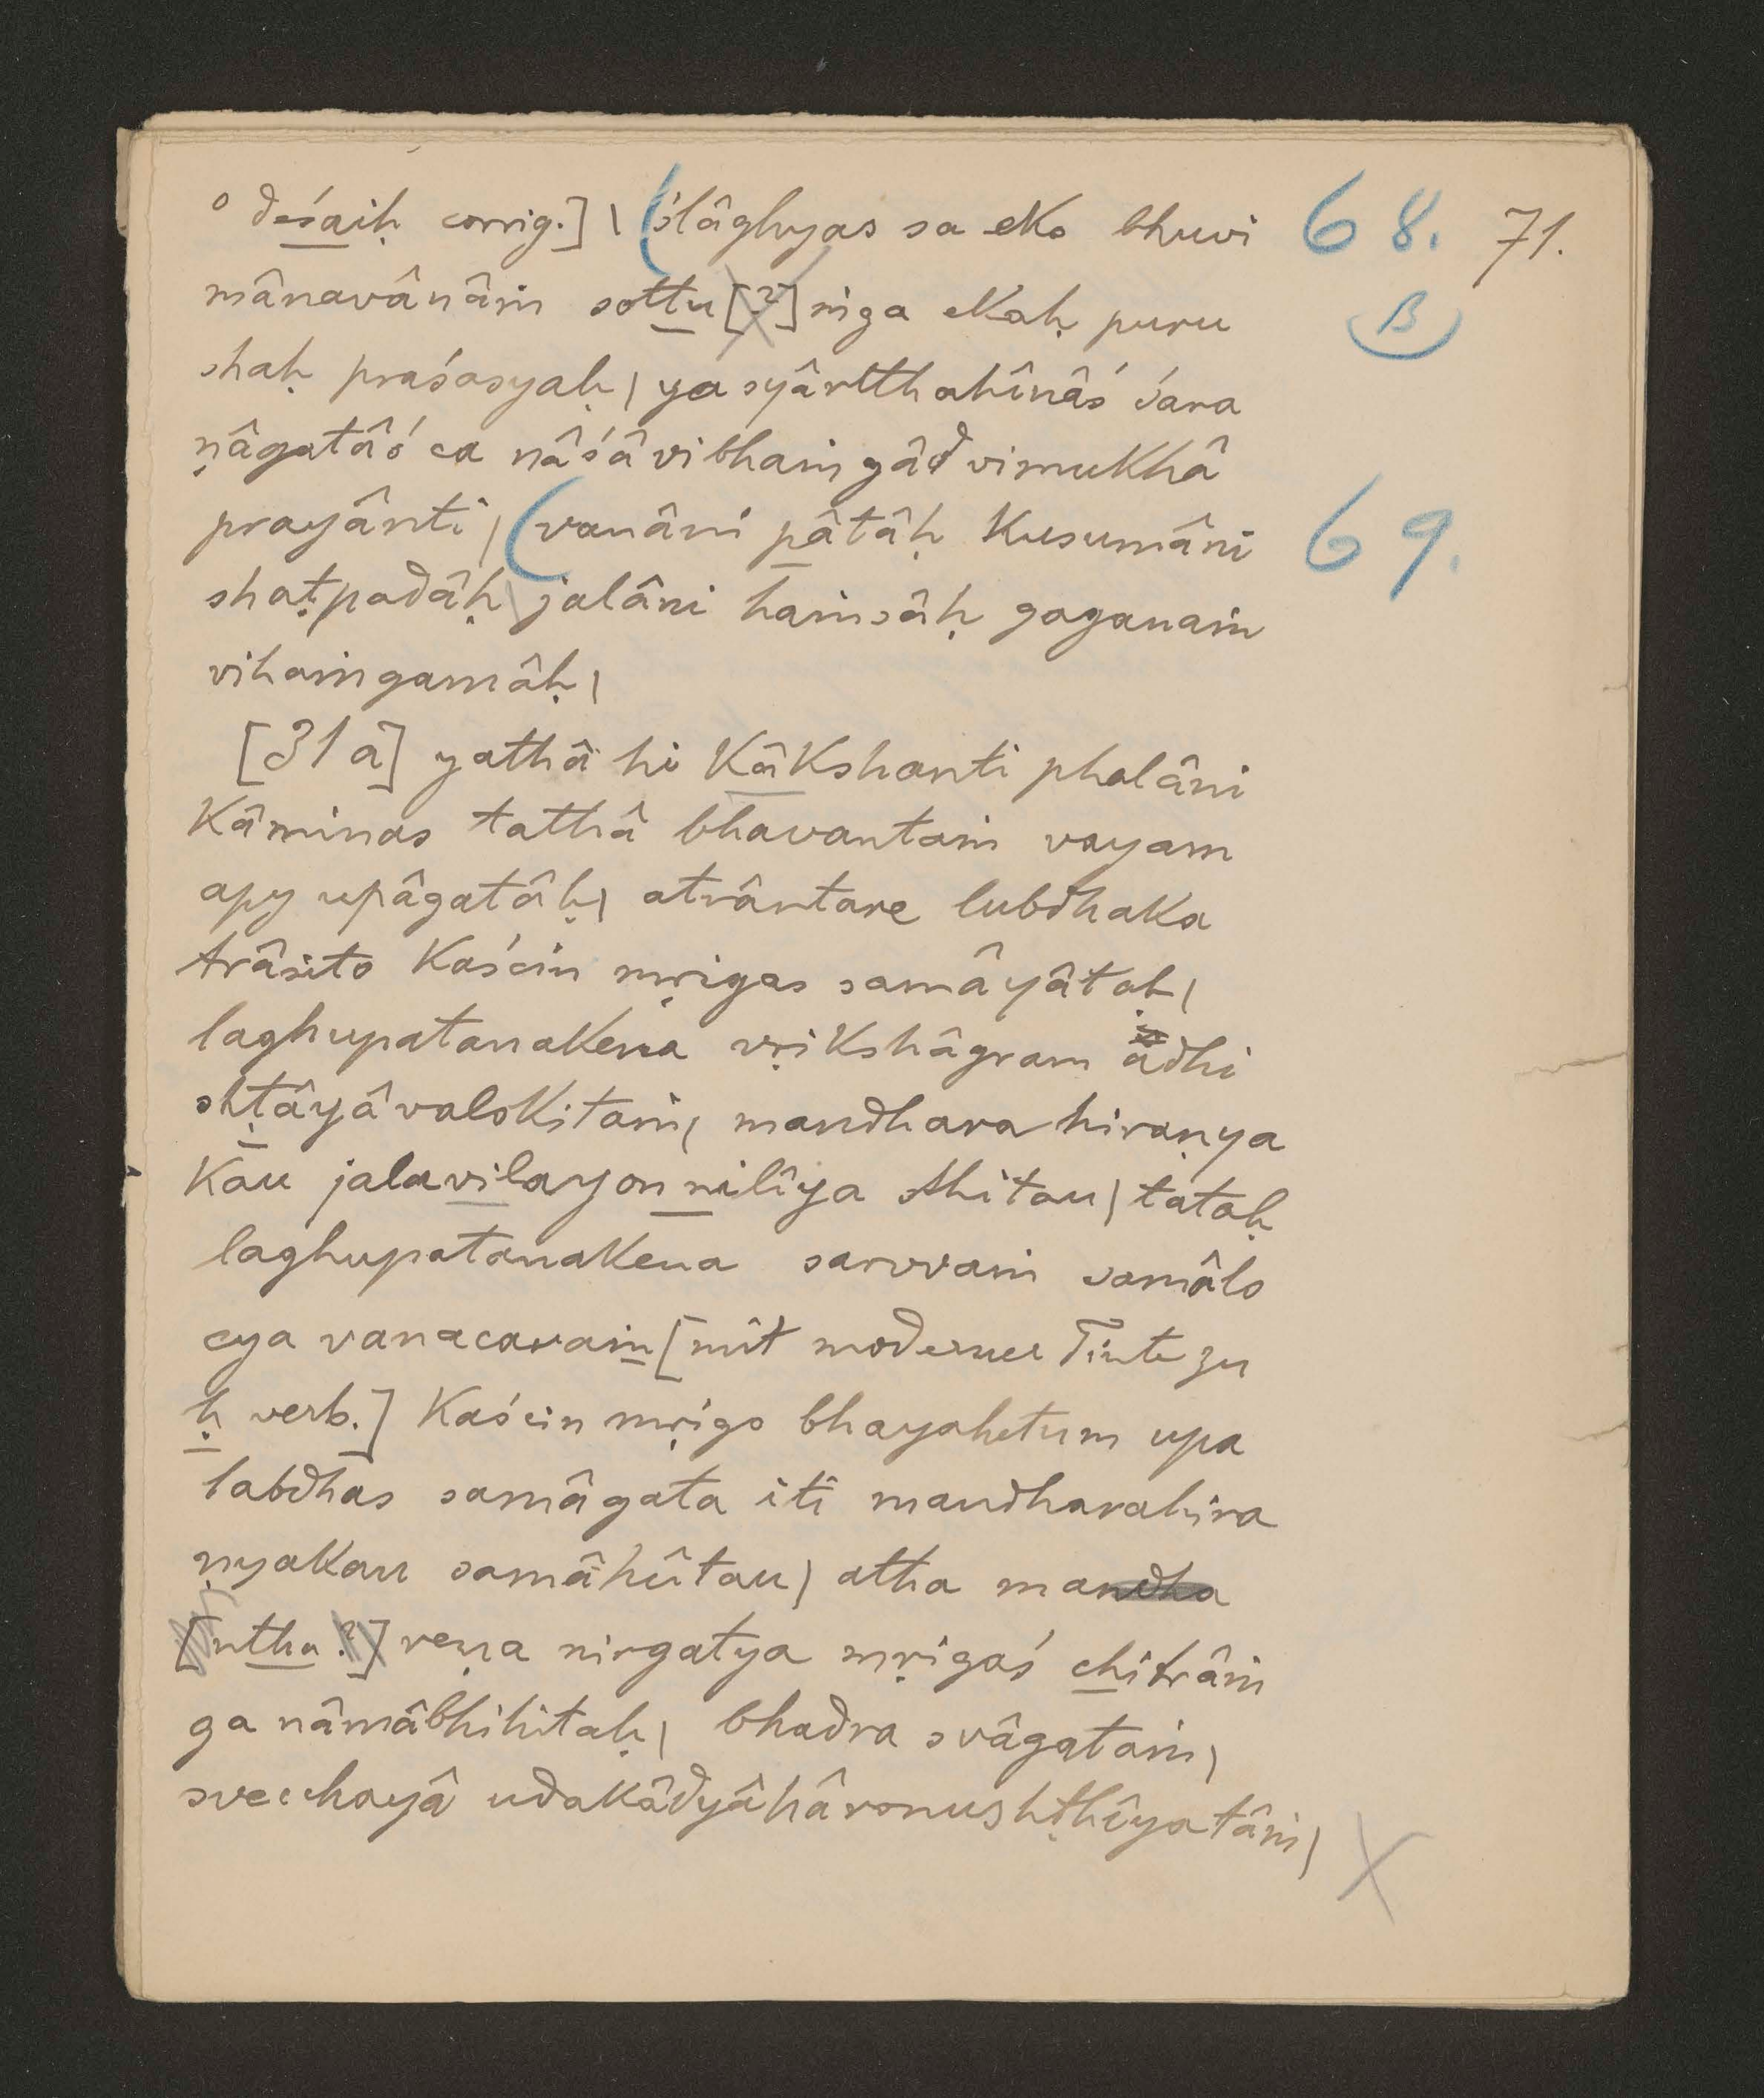 ° deśaiḥ corrig.] | (ślâghyas sa eko bhuvi 68. 71.
mânavânâṁ sottu[?]ṁga ekaḥ puru B
shaḥ praśasyaḥ | yasyârtthahînâś śara
ṇâgatâś ca nâśâvibhaṁgâd vimukhâ
prayânti | (vanâni pâtâḥ kusumâni 69.
shaṭpadâḥ jalâni haṁsâḥ gaganaṁ
vihaṁgamâḥ |
[31a] yathâ hi kâkshanti phalâni
kâminas tathâ bhavantaṁ vayam
apy upâgatâḥ | atrântare lubdhaka
trâsito kaścin mṛigas samâyâtaḥ |
laghupatanakena vṛikshâgram adhi
shṭâyâvalokitaṁ | mandhara hiraṇya
kau jalavilayon nilîya sthitau | tataḥ
laghupatanakena sarvvaṁ samâlo
cya vanacaraṁ [mit moderner Tinte zu
ḥ verb.] kaścin mṛigo bhayahetum upa
labdhas samâgata iti mandharahira
ṇyakau samâhûtau | atha mandha
[ntha?] reṇa nirgatya mṛigaś chitrâṁ
ga nâmâbhihitaḥ | bhadra svâgataṁ |
svecchayâ udakâdyâhâronushṭhîyatâṁ |